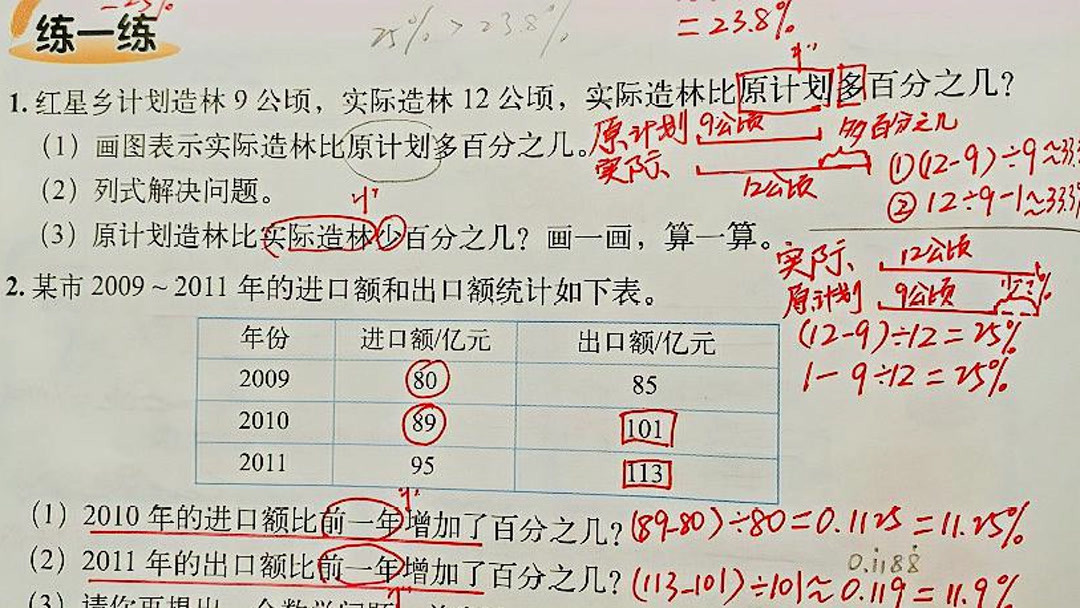 = 23.8%
25% > 23.8%
练一练
"1"
1. 红星乡计划造林 9 公顷，实际造林 12 公顷，实际造林比原计划多百分之几？
(1) 画图表示实际造林比原计划多百分之几。
原计划 9公顷 多百分之几
实际 12公顷
①(12-9)÷9≈33.3
②12÷9-1≈33.3%
(2) 列式解决问题。
"1"
(3) 原计划造林比实际造林少百分之几？画一画，算一算。
实际 12公顷
原计划 9公顷 少?%
(12-9)÷12=25%
1-9÷12=25%
2. 某市 2009～2011 年的进口额和出口额统计如下表。
年份 进口额/亿元 出口额/亿元
2009 80 85
2010 89 101
2011 95 113
"1"
(1) 2010 年的进口额比前一年增加了百分之几？(89-80)÷80=0.1125=11.25%
0.1188
(2) 2011 年的出口额比前一年增加了百分之几？(113-101)÷101≈0.119=11.9%
(3) 请你再提出一个数学问题